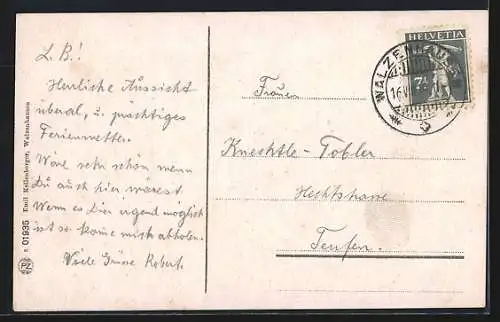 L. B.!
Herrliche Aussicht
überal, u. prächtiges
Ferienwetter.
Wäre sehr schön wenn
Du auch hier wärest.
Wenn es Dir irgend möglich
ist so komme mich abholen.
Viele Grüsse Robert.
Frauen
Knechtle-Tobler
Hechtstrasse
Teufen.
HELVETIA
7½
WALZENHAUSEN
16.VI
01935 Emil Kellenberger, Walzenhausen